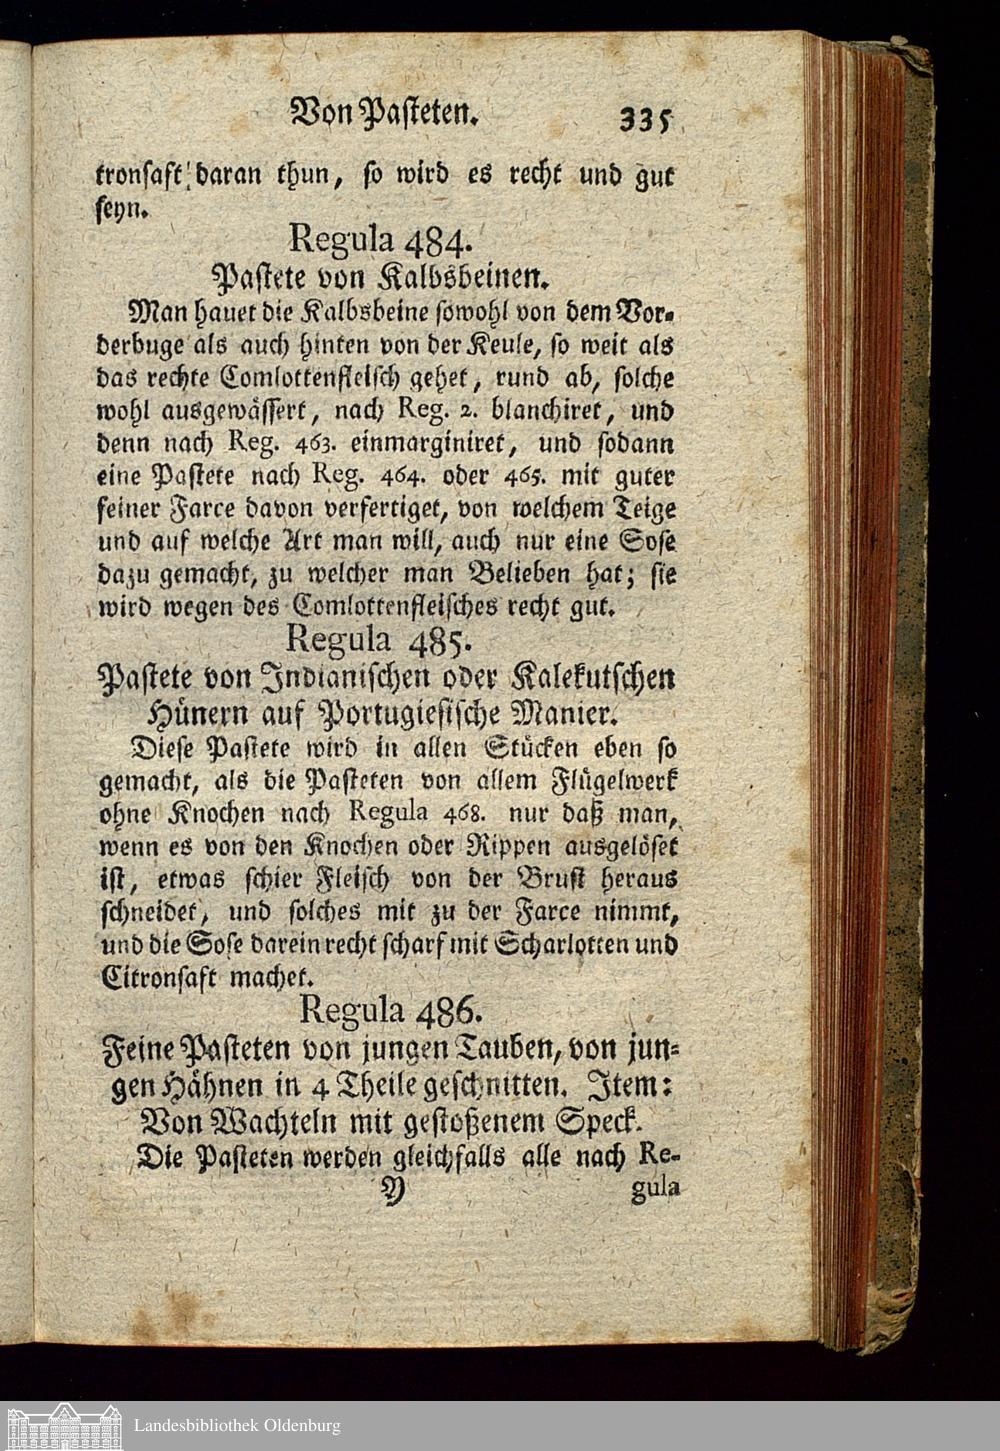 Von Pasteten. 335
tronsaft daran thun, so wird es recht und gut
seyn.
Regula 484.
Pastete von Kalbsbeinen.
Man hauet die Kalbsbeine sowohl von dem Vor-
derbuge als auch hinten von der Keule, so weit als
das rechte Comlottenfleisch gehet, rund ab, solche
wohl ausgewässert, nach Reg. 2. blanchiret, und
denn nach Reg. 463. einmarginiret, und sodann
eine Pastete nach Reg. 464. oder 465. mit guter
feiner Farce davon verfertiget, von welchem Teige
und auf welche Art man will, auch nur eine Sose
dazu gemacht, zu welcher man Belieben hat; sie
wird wegen des Comlottenfleisches recht gut.
Regula 485.
Pastete von Indianischen oder Kalekutschen
Hünern auf Portugiesische Manier.
Diese Pastete wird in allen Stücken eben so
gemacht, als die Pasteten von allem Flügelwerk
ohne Knochen nach Regula 468. nur daß man,
wenn es von den Knochen oder Rippen ausgelöset
ist, etwas schier Fleisch von der Brust heraus
schneidet, und solches mit zu der Farce nimmt,
und die Sose darein recht scharf mit Scharlotten und
Citronsaft machet.
Regula 486.
Feine Pasteten von jungen Tauben, von jun-
gen Hähnen in 4 Theile geschnitten. Item:
Von Wachteln mit gestoßenem Speck.
Die Pasteten werden gleichfalls alle nach Re-
Y gula
Landesbibliothek Oldenburg